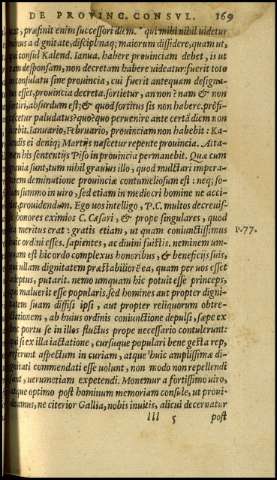 DE PROVINC. CONSVL. 169
at, præfinit enim successori diem. qui mihi nihil uidetur
rarus a dignitate, disciplináq; maiorum dissidere, quam ut,
consul Kalend. Ianua. habere prouinciam debet, is ut
am desponsam, non decretam habere uideatur: fuerit toto
consulatu sine prouincia, cui fuerit antequam designa-
esset, prouincia decreta. sortietur, an non? nam & non
tiri, absurdum est; & quod sortitus sis non habere. profi-
cetur paludatus? quo? quo peruenire ante certā diem non
ebit. Ianuario, Februario, prouinciam non habebit: Ka-
dis ei deniq; Martijs nascetur repente prouincia. Atta-
his sententijs Piso in prouincia permanebit. Quæ cum
uia sunt, tum nihil grauius illo, quod mulctari impera-
em deminutione prouinciæ contumeliosum est: neq; so-
in summo uiro, sed etiam in mediocri homine ne acci-
prouidendum. Ego uos intelligo, P.C. multos decreuis-
honores eximios C. Cæsari, & prope singulares, quod
a meritus erat: gratis etiam, ut quam coniunctissimus
ic ordini esset, sapientes, ac diuini fuistis. neminem um-
am est hic ordo complexus honoribus, & beneficijs suis,
ullam dignitatem præstabiliorē ea, quam per uos esset
eptus, putarit. nemo umquam hic potuit esse princeps,
maluerit esse popularis. sed homines aut propter digni-
em suam diffisi ipsi, aut propter reliquorum obtre-
tionem, ab huius ordinis coniunctione depulsi, sæpe ex
portu se in illos fluctus prope necessario contulerunt:
si ex illa iactatione, cursuque populari bene gesta rep.
ferunt aspectum in curiam, atque huic amplissimæ di-
gnitati commendati esse uolunt, non modo non repellendi
nt, uerumetiam expetendi. Monemur a fortissimo uiro,
que optimo post hominum memoriam consule, ut proui-
amus, ne citerior Gallia, nobis inuitis, alicui decernatur
lll 5 post